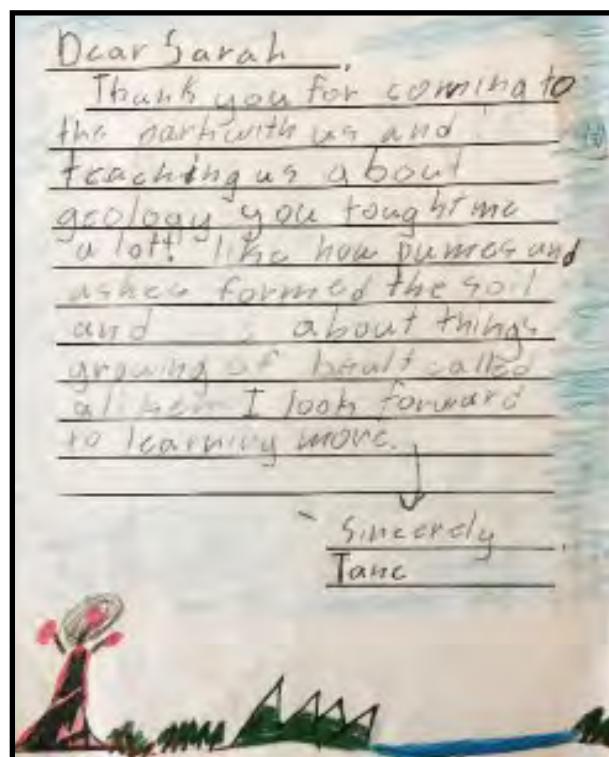 Dear Sarah,
Thank you for coming to
the park with us and
teaching us about
geology you tought me
a lott! like how pumes and
ashes formed the soil
and about things
growing of called
I look forward
to learning more.
Sincerely,
Jane